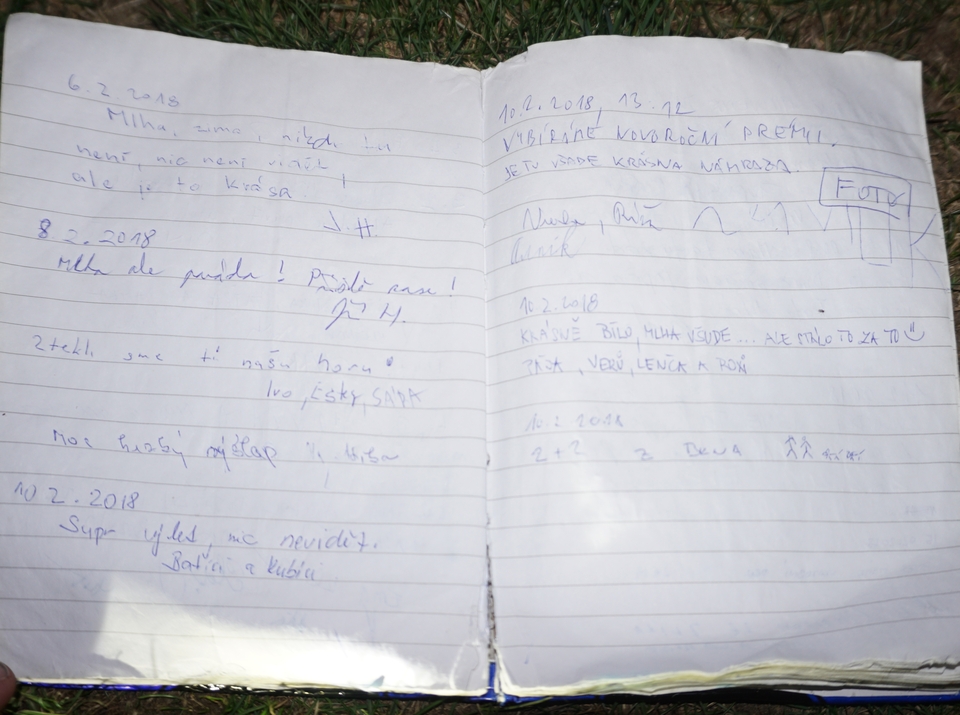 6.2 2018
Mlha, zima, nikde tu
není, nic není vidět,
ale je to krása.
J.H.
8 2.2018
Mlha ale paráda! Příště zase!
Jiří H.
Ztekli sme ti našu horu
Ivo, Esky, SÁRA
Moc hezký výšlap
10 2.2018
Supr výlet, nic nevidět.
Bařici a Kubíci
10.2.2018, 13.12
VYBÍRÁME NOVOROČNÍ PRÉMII.
JE TU VŠUDE KRÁSNÁ NÁMRAZA.
FOTK
10.2.2018
KRÁSNĚ BÍLO, MLHA VŠUDE... ALE STÁLO TO ZA TO
PÁJA, VERČ, LENČA A
10.2 2018
2+2 Z BRNA